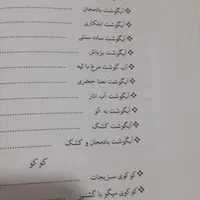 آبگوشت بادمجان
آبگوشت ابتکاری
آبگوشت ساده سنتی
آبگوشت بزباش
آب گوشت مرغ با لپه
آبگوشت نعنا جعفری
آبگوشت آب انار
آبگوشت به آلو
آبگوشت کشک
آبگوشت بادمجان و کشک
کوکو
کوکوی سبزیجات
کوکوی میگو یا گشنیز